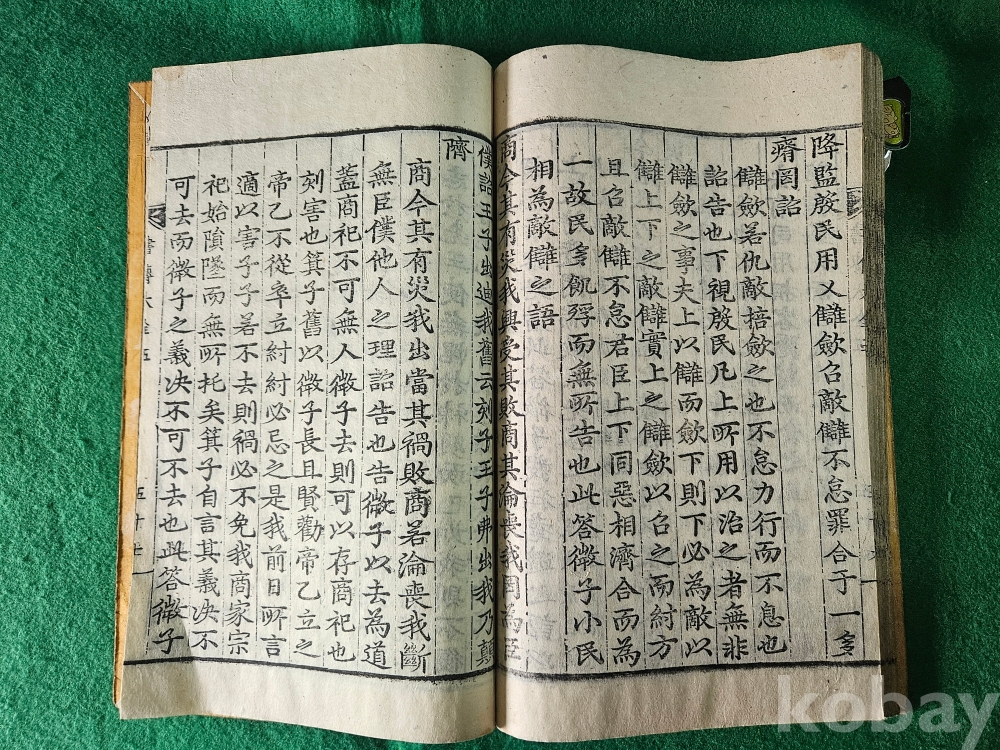 降監殷民用乂讎斂召敵讎不怠罪合于一多
瘠罔詔
讎斂若仇敵掊斂之也不怠力行而不息也
詔告也下視殷民凡上所用以治之者無非
讎斂之事夫上以讎而斂下則下必為敵以
讎上下之敵讎實上之讎斂以召之而紂方
且召敵讎不怠君臣上下同惡相濟合而為
一故民多飢殍而無所告也此答微子小民
相為敵讎之語
商今其有災我興受其敗商其淪喪我罔為臣
僕詔王子出迪我舊云刻子王子弗出我乃顛
隮
商今其有災我出當其禍敗商若淪喪我斷
無臣僕他人之理詔告也告微子以去為道
蓋商祀不可無人微子去則可以存商祀也
刻害也箕子舊以微子長且賢勸帝乙立之
帝乙不從卒立紂紂必忌之是我前日所言
適以害子子若不去則禍必不免我商家宗
祀始隕墜而無所托矣箕子自言其義决不
可去而微子之義决不可不去也此答微子
kobay